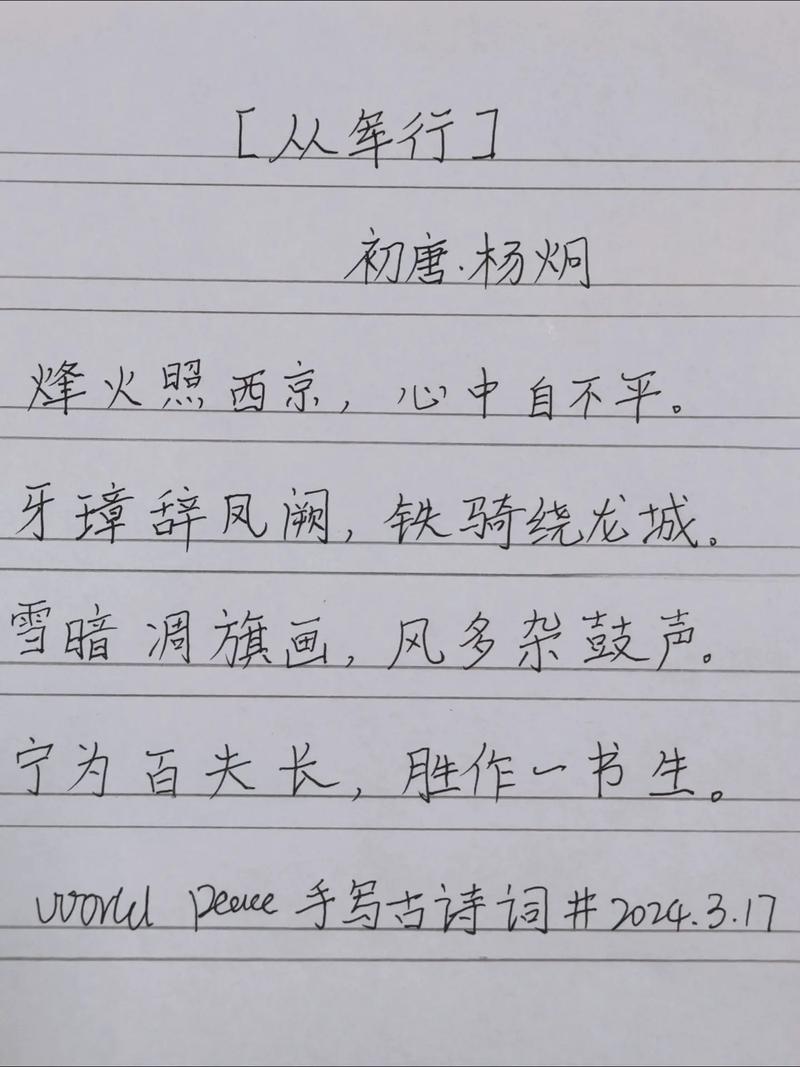 [从军行]
初唐.杨炯
烽火照西京，心中自不平。
牙璋辞凤阙，铁骑绕龙城。
雪暗凋旗画，风多杂鼓声。
宁为百夫长，胜作一书生。
world peace 手写古诗词#2024.3.17